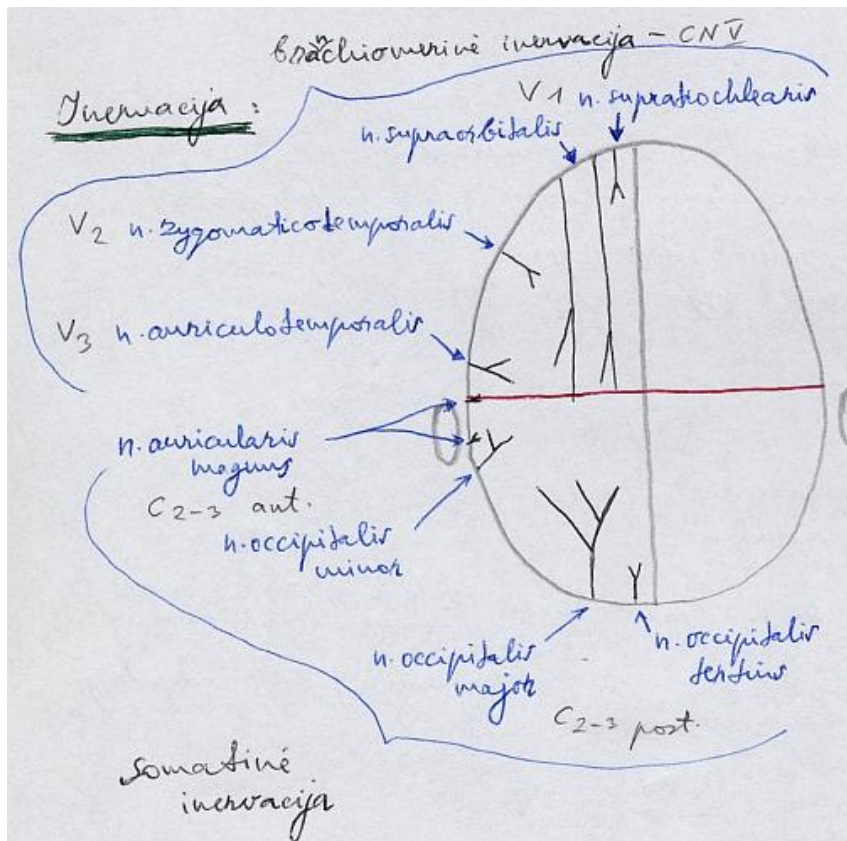 branchiomerinė inervacija – CN V
Inervacija :
V1 n. supratrochlearis
n. supraorbitalis
V2 n. zygomaticotemporalis
V3 n. auriculotemporalis
n. auricularis
magnus
C2-3 ant.
n. occipitalis
minor
n. occipitalis
major
n. occipitalis
tertius
C2-3 post.
Somatinė
inervacija